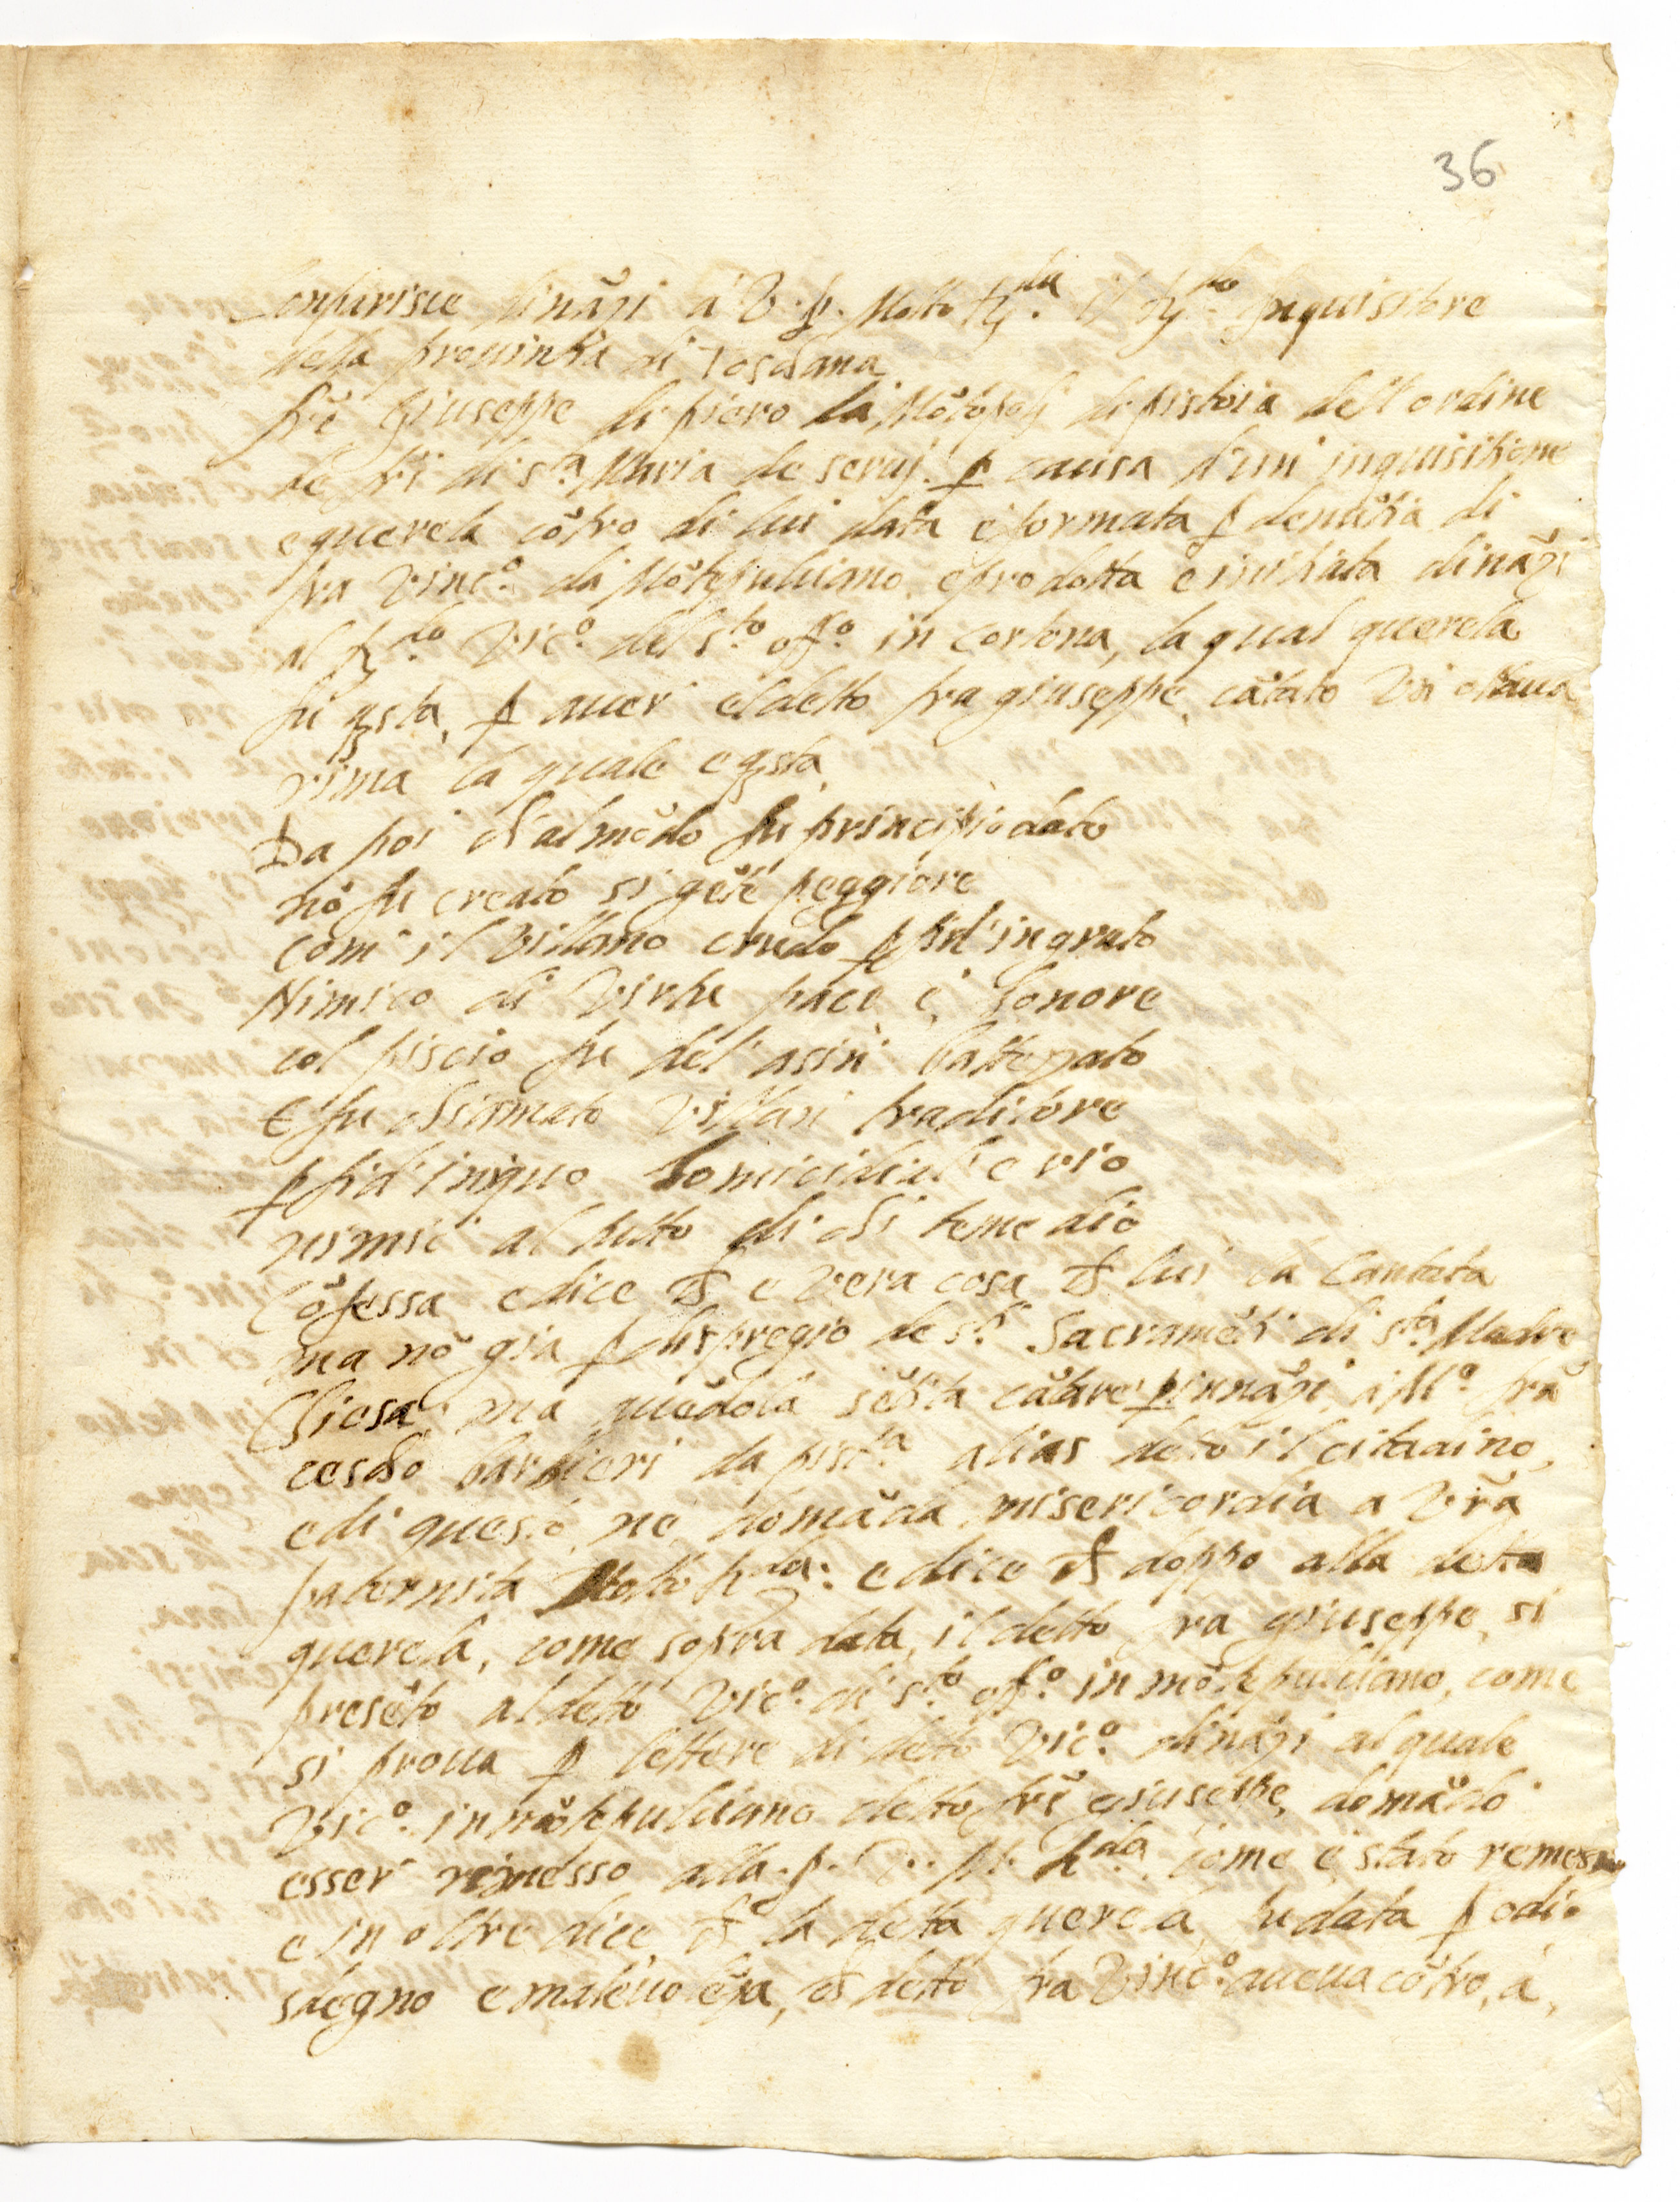 36
Conparisce dinãzi à V. P. Molto R.da il R.do Inquisitore
della prouintia di Toschana
frẽ Giuseppe di piero da Mõtopoli di pistoia dell'ordine
de fri di s.ta Maria de serui. ꝑ causa d'un inquisitione
e querela cõtro di lui data e formata ꝑ denũtia di
fra Vinc.o da Mõtepulciano, e prodotta e intitata dinãzi
al R.do Vic.o del s.to off.o in cortona, la qual querela
fu q̃sta, ꝑ auer el detto fra giuseppe, cãtato Vn ottaua
rima la quale e q̃sta
Da poi ch'al mõdo fu principio dato
nõ fu creato si gẽte peggiore
com' il Villano crudo ꝑfid'ingrato
Nimico di Virtu pace e, honore
col piscio fu del'asin' battezato
e fu chiamato Villan traditore
ꝑfid'iniquo homicidial' e rio
nimic' al tutto di chi teme dio
Cõfessa e dice ch e Vera cosa ch lui la Cantata
ma nõ gia ꝑ dispregio de s.ti Sacramẽti di s.ta Madre
Chiesa ma auẽdola sẽtita cãtare ꝑ innãzi, à M.o frã
cescho barbieri da pist.a alias detto il citaaino,
e di questo, ne, domãda misericordia a Vrã
paternita Molto R.da: e dice ch doppo alla detta
querela, come sopra data, il detto fra giuseppe, si
presẽto al detto Vic.o di s.to off.o in mõtepulciano, come
si proua ꝑ lettere di detto Vic.o dinãzi al quale
Vic.o in mõtepulciano detto frẽ giuseppe, domãdo
esser rimesso alla .P. V. M. R.da, come e, stato remesso
e in oltre dice, ch la detta querela, fu data ꝑ odio
sdegno e maleuolẽza, ch detto fra Vinc.o aueua cõtro, à,